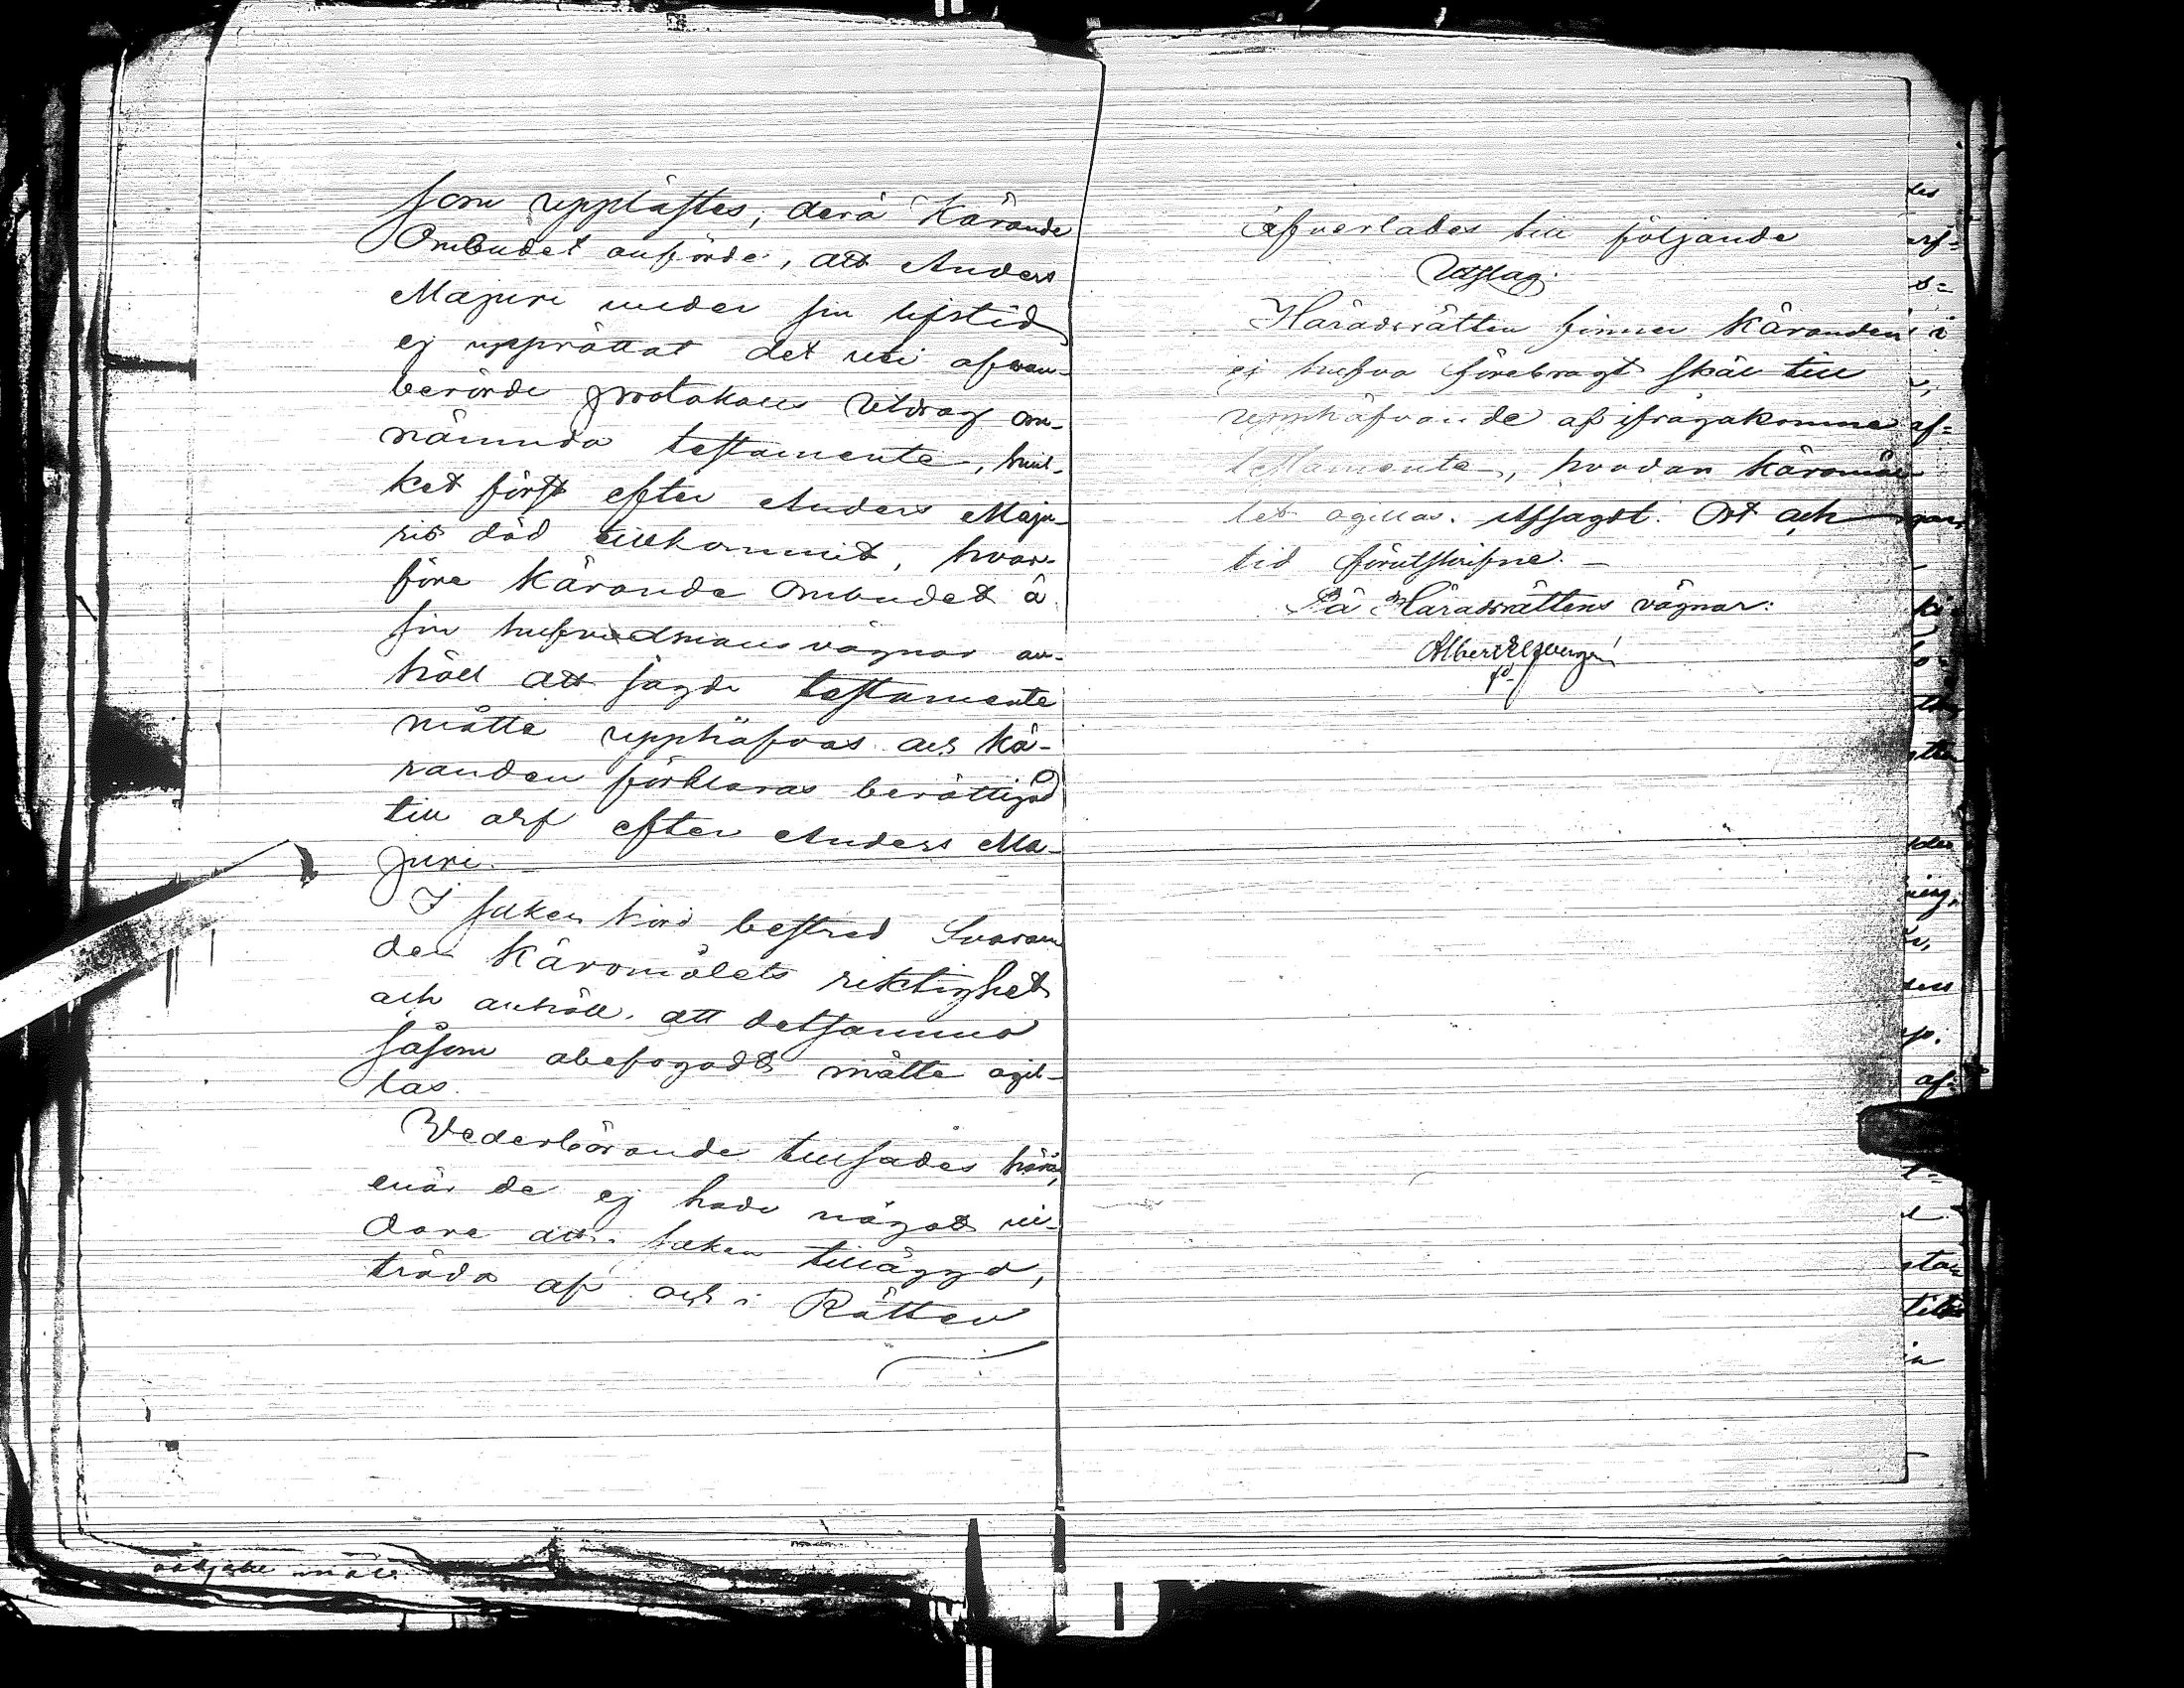 som upplästes, derå Kärande
Ombudet anförde, att Anders
Majuri under sin lifstid
ej upprättat det uti ofvan-
berörde protokolls utdrag om-
nämnda testamente, hvil-
ket först efter Anders Maju-
ris död tillkommit, hvar-
före Kärande Ombudet å
sin hufvudmans vägnar an-
höll att sagde testamente
måtte upphäfvas och Kä-
randen förklaras berättigad
till arf efter Anders Ma-
juri.
I saken hörd bestred Svaran
den Käromålets riktighet
och anhöll, att detsamma
såsom obefogadt måtte ogil-
las.
Vederbörande tillsades härå,
enär de ej hade något vi-
dare att i saken tillägga,
träda af och i Rätten
öfverlades till följande
Utslag:
Häradsrätten finner Käranden
ej hafva förebragt skäl till
upphäfvande af ifrågakomna
testamente, hvadan Käromå
let ogillas. Afsagdt. Ort och
tid förutskrifne.
På Häradsrättens vägnar: